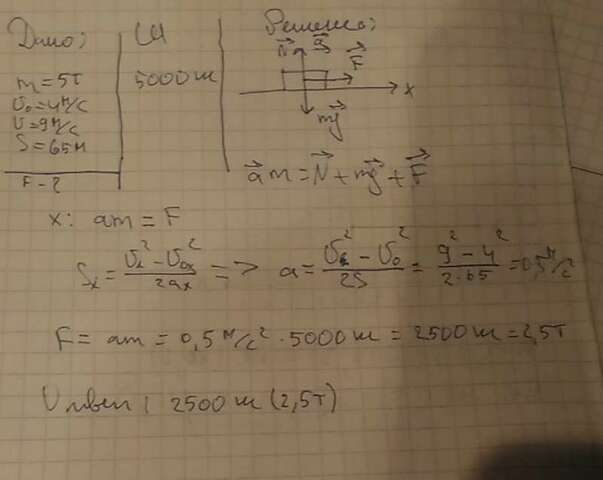 Дано:
m = 5т
υ₀ = 4 м/с
υ = 9 м/с
S = 65 м
F - ?
СИ
5000 кг
Решение:
N⃗ a⃗ F⃗
x
mg⃗
a⃗m = N⃗ + mg⃗ + F⃗
x: am = F
Sₓ = (υₓ² - υ₀ₓ²)/(2aₓ) => a = (υₓ² - υ₀²)/(2S) = (9² - 4²)/(2·65) = 0,5 м/с²
F = am = 0,5 м/с² · 5000 кг = 2500 кг = 2,5т
Ответ: 2500 кг (2,5т)